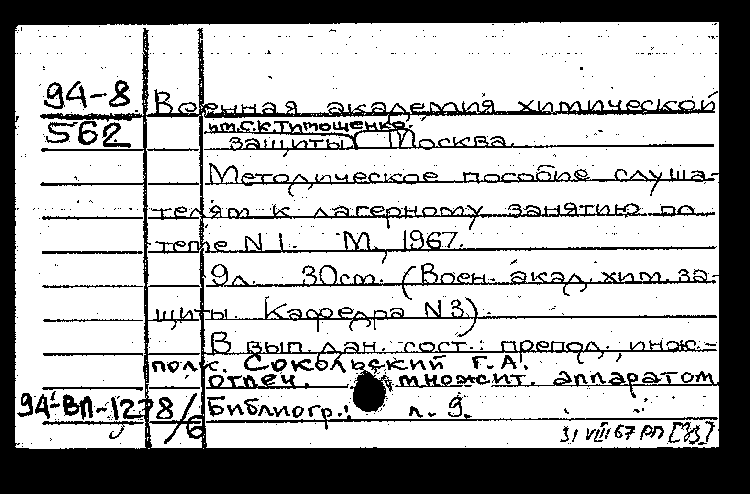 94-8 Военная академия химической
562 им. С.К. Тимошенко.
защиты Москва.
Методическое пособие слуша-
телям к лагерному занятию по
теме N 1. М., 1967.
9л. 30см. (Воен. акад. хим. за-
щиты Кафедра N3).
В вып. дан. сост.: препод. инж.-
полк. Сокольский Г.А.
отпеч. множит. аппаратом
94-ВП-1278/6 Библиогр.: л. 9.
31 VIII 67 РП